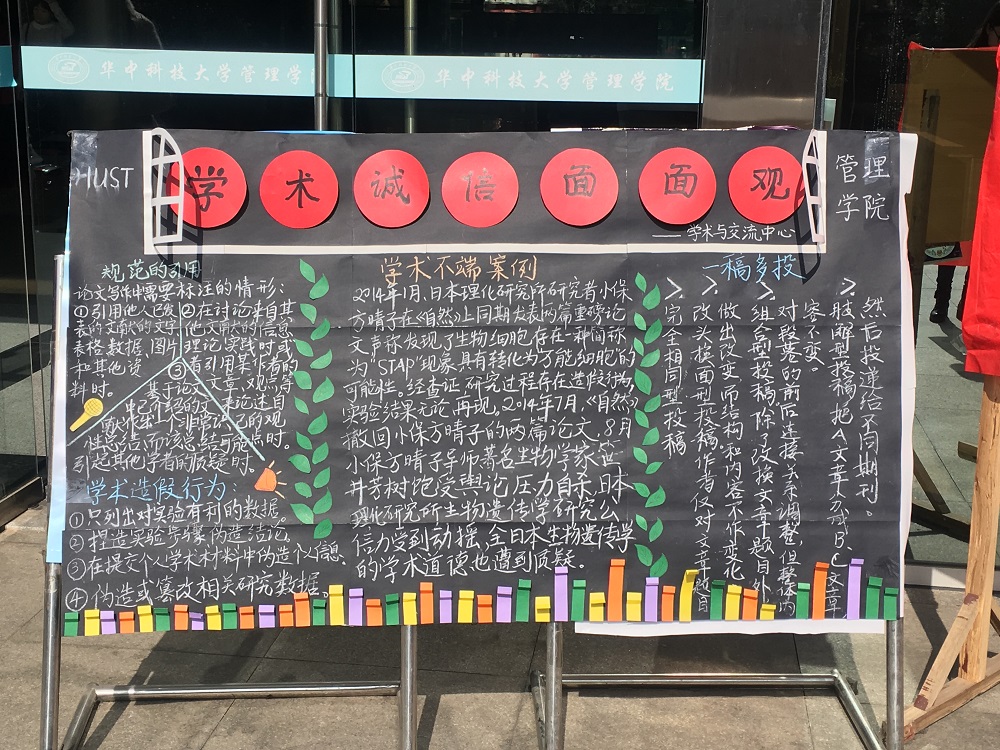 华中科技大学管理学院
华中科技大学管理学院
HUST
学术诚信面面观
管理
学院
——学术与交流中心
规范的引用
论文写作中需要标注的情形:
①引用他人已发
表的文献的文字、
表格、数据、图片
和其他资
料时.
②在讨论来自其
他文献的信息
理论,实践时或
③者引用某作者的
文章、观点等
基于论文
中已介绍的文
献作出一个非常
性总结,而该总结与能
引起其他学者的质疑时.
学术造假行为:
①只列出对实验有利的数据。
②捏造实验步骤,伪造结论.
③在提交个人学术材料中伪造个人信息.
④伪造或篡改相关研究数据。
学术不端案例
2014年1月、日本理化研究所研究者小保
方晴子在《自然》上同期发表两篇重磅论
文声称发现了生物细胞存在一种简称
为"STAP"现象具有转化为万能细胞的
可能性。经查证,研究过程存在造假行为,
实验结果无法再现。2014年7月,《自然》
撤回小保方晴子的两篇论文。8月
小保方晴子导师著名生物学家笹
井芳树饱受舆论压力自杀.日本
理化研究所生物遗传学研究公
信力受到动摇,全日本生物遗传学
的学术道德也遭到质疑。
一稿多投
>完全相同型投稿
>改头换面型投稿,作者仅对文章题目
做出改变而结构和内容不作变化
>组合型投稿,除了改换文章题目外,
对段落的前后连接关系调整,但整体内
容不变。
>肢解型投稿,把A文章分成B、C文章
然后投递给不同期刊。